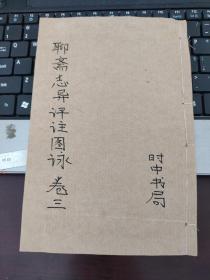 聊斋志异评注图咏 卷三
时中书局